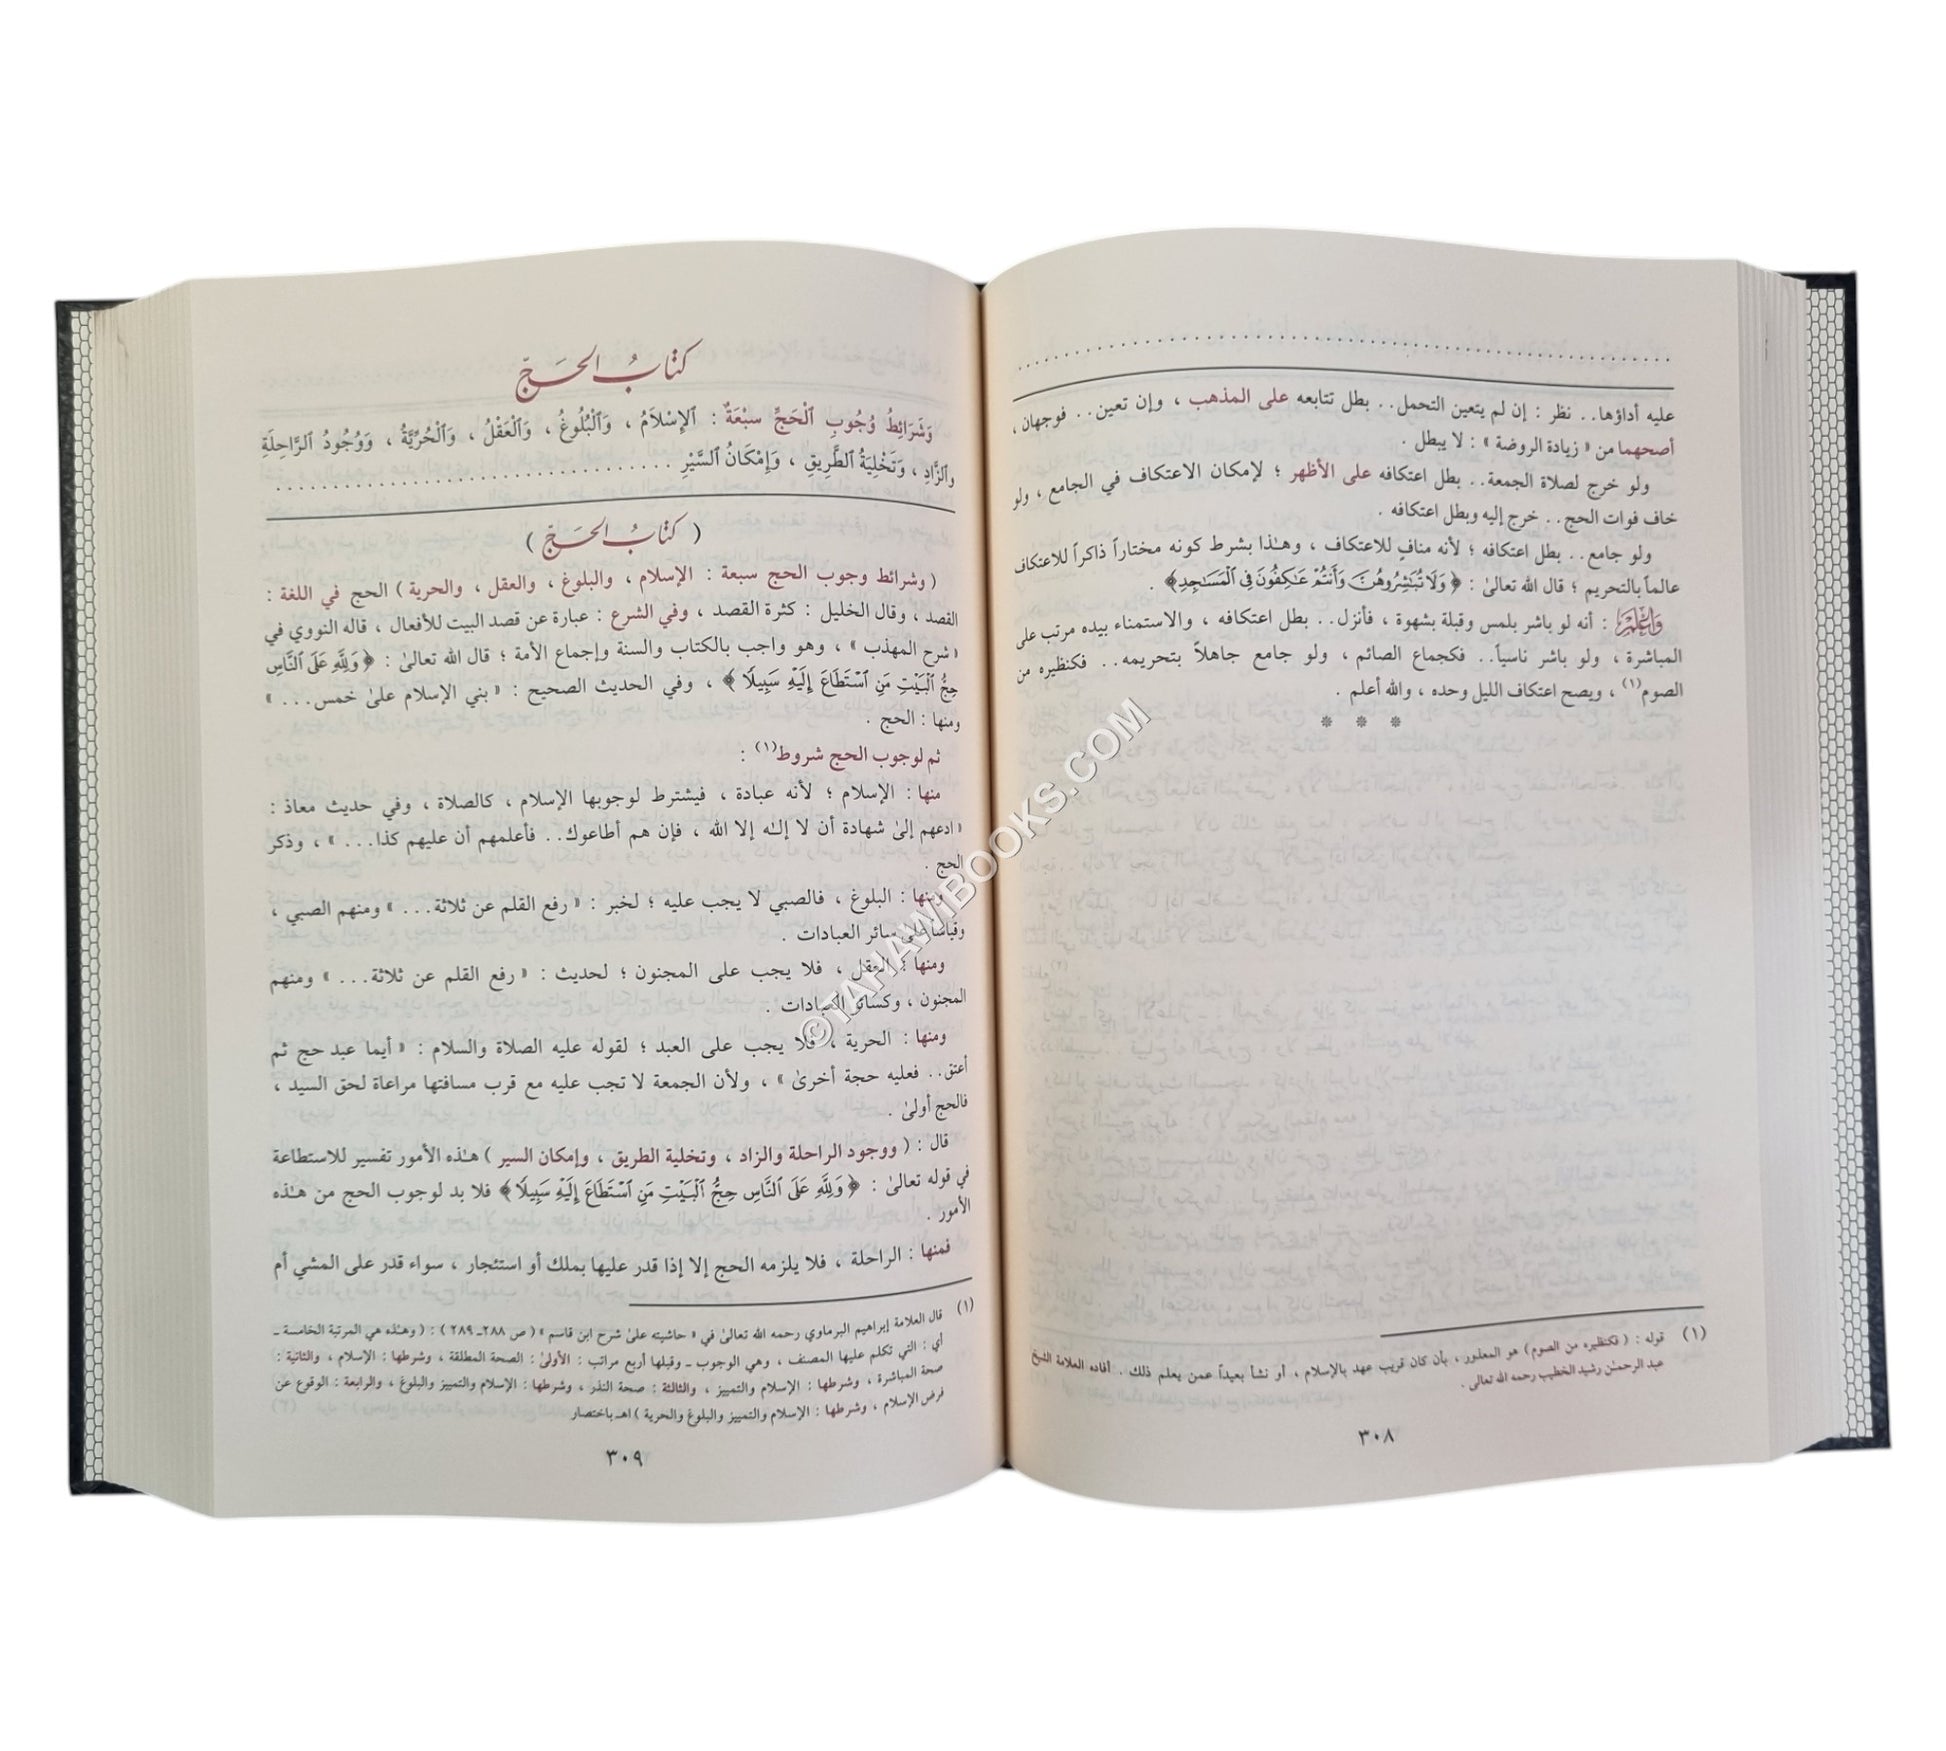 عليه أداؤها.. نظر : إن لم يتعين التحمل.. بطل تتابعه على المذهب ، وإن تعين.. فوجهان ،
أصحهما من « زيادة الروضة » : لا يبطل .
ولو خرج لصلاة الجمعة.. بطل اعتكافه على الأظهر ؛ لإمكان الاعتكاف في الجامع ، ولو
خاف فوات الحج.. خرج إليه وبطل اعتكافه .
ولو جامع.. بطل اعتكافه ؛ لأنه منافٍ للاعتكاف ، وهـٰذا بشرط كونه مختاراً ذاكراً للاعتكاف
عالماً بالتحريم ؛ قال الله تعالىٰ : ﴿ وَلَا تُبَٰشِرُوهُنَّ وَأَنتُمْ عَٰكِفُونَ فِي الْمَسَٰجِدِ﴾ .
وَاعْلَمْ : أنه لو باشر بلمس وقبلة بشهوة ، فأنزل.. بطل اعتكافه ، والاستمناء بيده مرتب على
المباشرة ، ولو باشر ناسياً.. فكجماع الصائم ، ولو جامع جاهلاً بتحريمه.. فكنظيره من
الصوم(١) ، ويصح اعتكاف الليل وحده ، والله أعلم .
* * *
(١) قوله : ( فكنظيره من الصوم ) هو المعذور ، بأن كان قريب عهد بالإسلام ، أو نشأ بعيداً عمن يعلم ذلك . أفاده العلامة الشيخ
عبد الرحمـٰن رشيد الخطيب رحمه الله تعالى .
٣٠٨
كتاب الحج
وَشَرَائِطُ وُجُوبِ ٱلْحَجِّ سَبْعَةٌ : ٱلإِسْلَامُ ، وَٱلْبُلُوغُ ، وَٱلْعَقْلُ ، وَٱلْحُرِّيَّةُ ، وَوُجُودُ ٱلرَّاحِلَةِ
وٱلزَّادِ ، وَتَخْلِيَةُ ٱلطَّرِيقِ ، وَإِمْكَانُ ٱلسَّيْرِ
( كتاب الحج )
( وشرائط وجوب الحج سبعة : الإسلام ، والبلوغ ، والعقل ، والحرية ) الحج في اللغة :
القصد ، وقال الخليل : كثرة القصد ، وفي الشرع : عبارة عن قصد البيت للأفعال ، قاله النووي في
« شرح المهذب » ، وهو واجب بالكتاب والسنة وإجماع الأمة ؛ قال الله تعالىٰ : ﴿ وَلِلَّهِ عَلَى ٱلنَّاسِ
حِجُّ ٱلْبَيْتِ مَنِ ٱسْتَطَاعَ إِلَيْهِ سَبِيلًا ﴾ ، وفي الحديث الصحيح : « بني الإسلام علىٰ خمس... »
ومنها : الحج .
ثم لوجوب الحج شروط(١) :
منها : الإسلام ؛ لأنه عبادة ، فيشترط لوجوبها الإسلام ، كالصلاة ، وفي حديث معاذ :
« ادعهم إلىٰ شهادة أن لا إلـٰه إلا الله ، فإن هم أطاعوك.. فأعلمهم أن عليهم كذا... » ، وذكر
الحج .
ومنها : البلوغ ، فالصبي لا يجب عليه ؛ لخبر : « رفع القلم عن ثلاثة... » ومنهم الصبي ،
وقياسا على سائر العبادات .
ومنها : العقل ، فلا يجب على المجنون ؛ لحديث : « رفع القلم عن ثلاثة... » ومنهم
المجنون ، وكسائر العبادات .
ومنها : الحرية ، فلا يجب على العبد ؛ لقوله عليه الصلاة والسلام : « أيما عبد حج ثم
أعتق.. فعليه حجة أخرىٰ » ، ولأن الجمعة لا تجب عليه مع قرب مسافتها مراعاة لحق السيد ،
فالحج أولىٰ .
قال : ( ووجود الراحلة والزاد ، وتخلية الطريق ، وإمكان السير ) هـٰذه الأمور تفسير للاستطاعة
في قوله تعالىٰ : ﴿ وَلِلَّهِ عَلَى ٱلنَّاسِ حِجُّ ٱلْبَيْتِ مَنِ ٱسْتَطَاعَ إِلَيْهِ سَبِيلًا ﴾ فلا بد لوجوب الحج من هـٰذه
الأمور .
فمنها : الراحلة ، فلا يلزمه الحج إلا إذا قدر عليها بملك أو استئجار ، سواء قدر على المشي أم
(١) قال العلامة إبراهيم البرماوي رحمه الله تعالىٰ في « حاشيته علىٰ شرح ابن قاسم » ( ص ٢٨٨ـ ٢٨٩ ) : ( وهـٰذه هي المرتبة الخامسة ـ
أي : التي تكلم عليها المصنف ، وهي الوجوب ـ وقبلها أربع مراتب : الأولىٰ : الصحة المطلقة ، وشرطها : الإسلام ، والثانية :
صحة المباشرة ، وشرطها : الإسلام والتمييز ، والثالثة : صحة النذر ، وشرطها : الإسلام والتمييز والبلوغ ، والرابعة : الوقوع عن
فرض الإسلام ، وشرطها : الإسلام والتمييز والبلوغ والحرية ) اهـ باختصار
٣٠٩
©TAHAWIBOOKS.COM